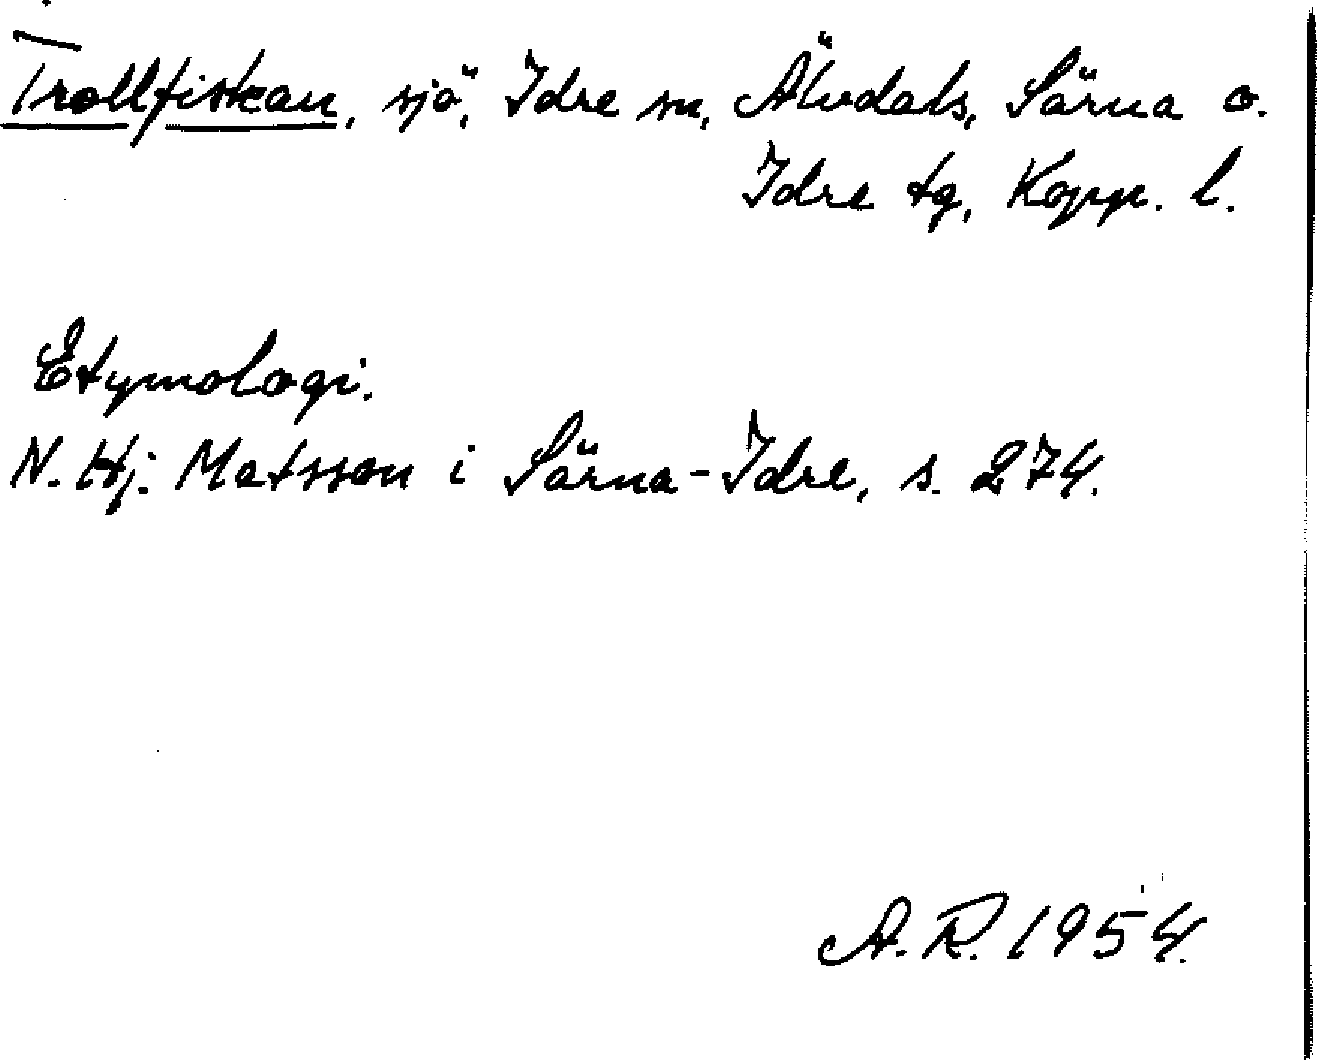 Trollfiskan, sjö, Idre sn, Älvdals, Särna o.
Idre tg, Kopp. l.
Etymologi.
N. Hj. Matsson i Särna-Idre, s. 274.
A. R. 1954.